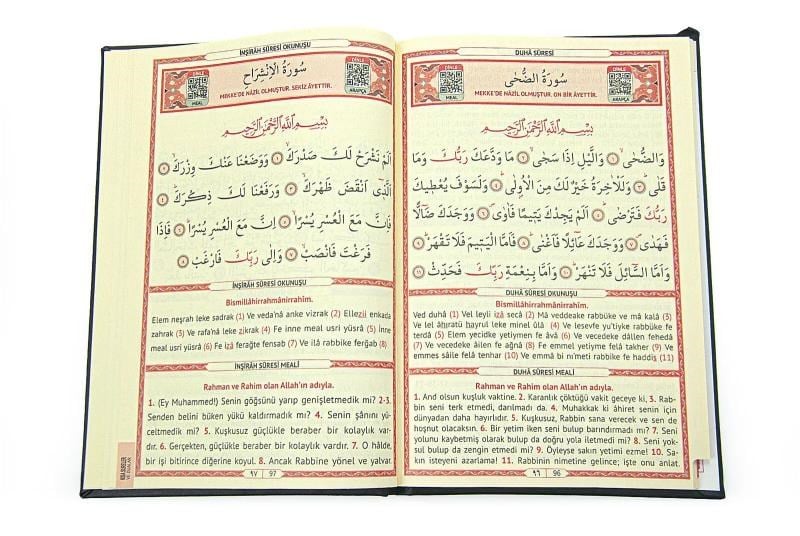 DUHÂ SÛRESİ
DİNLE
MEAL
سُورَةُ الضُّحٰى
MEKKE'DE NÂZİL OLMUŞTUR. ON BİR ÂYETTİR.
DİNLE
ARAPÇA
بِسْمِ اللّٰهِ الرَّحْمٰنِ الرَّحِيمِ
وَالضُّحٰىۙ ﴿١﴾ وَالَّيْلِ اِذَا سَجٰىۙ ﴿٢﴾ مَا وَدَّعَكَ رَبُّكَ وَمَا
قَلٰىۜ ﴿٣﴾ وَلَلْاٰخِرَةُ خَيْرٌ لَكَ مِنَ الْاُولٰىۜ ﴿٤﴾ وَلَسَوْفَ يُعْطِيكَ
رَبُّكَ فَتَرْضٰىۜ ﴿٥﴾ اَلَمْ يَجِدْكَ يَتِيمًا فَاٰوٰىۖ ﴿٦﴾ وَوَجَدَكَ ضَٓالًّا
فَهَدٰىۖ ﴿٧﴾ وَوَجَدَكَ عَٓائِلًا فَاَغْنٰىۜ ﴿٨﴾ فَاَمَّا الْيَتِيمَ فَلَا تَقْهَرْۜ ﴿٩﴾
وَاَمَّا السَّٓائِلَ فَلَا تَنْهَرْۜ ﴿١٠﴾ وَاَمَّا بِنِعْمَةِ رَبِّكَ فَحَدِّثْ ﴿١١﴾
DUHÂ SÛRESİ OKUNUŞU
Bismillâhirrahmânirrahîm.
Ved duhâ (1) Vel leyli izâ secâ (2) Mâ veddeake rabbüke ve mâ kalâ (3)
Ve lel âhıratü hayrul leke minel ûlâ (4) Ve lesevfe yu'tiyke rabbüke fe
terdâ (5) Elem yecidke yetiymen fe âvâ (6) Ve vecedeke dâllen fehedâ
(7) Ve vecedeke âilen fe ağnâ (8) Fe emmel yetiyme felâ takher (9) Ve
emmes sâile felâ tenhar (10) Ve emmâ bi ni'meti rabbike fe haddis (11)
DUHÂ SÛRESİ MEÂLİ
Rahman ve Rahim olan Allah'ın adıyla.
1. And olsun kuşluk vaktine. 2. Karanlık çöktüğü vakit geceye ki, 3. Rab-
bin seni terk etmedi, darılmadı da. 4. Muhakkak ki âhiret senin için
dünyadan daha hayırlıdır. 5. Kuşkusuz, Rabbin sana verecek ve sen de
hoşnut olacaksın. 6. Bir yetim iken seni bulup barındırmadı mı? 7. Seni
yolunu kaybetmiş olarak bulup da doğru yola iletmedi mi? 8. Seni yok-
sul bulup da zengin etmedi mi? 9. Öyleyse sakın yetimi ezme! 10. Sa-
kın isteyeni azarlama! 11. Rabbinin nimetine gelince; işte onu anlat.
٩٦ 96
İNŞİRÂH SÛRESİ OKUNUŞU
DİNLE
MEAL
سُورَةُ الْاِنْشِرَاحِ
MEKKE'DE NÂZİL OLMUŞTUR. SEKİZ ÂYETTİR.
DİNLE
ARAPÇA
بِسْمِ اللّٰهِ الرَّحْمٰنِ الرَّحِيمِ
اَلَمْ نَشْرَحْ لَكَ صَدْرَكَۙ ﴿١﴾ وَوَضَعْنَا عَنْكَ وِزْرَكَۙ ﴿٢﴾
اَلَّذِٓي اَنْقَضَ ظَهْرَكَۙ ﴿٣﴾ وَرَفَعْنَا لَكَ ذِكْرَكَۜ ﴿٤﴾
فَاِنَّ مَعَ الْعُسْرِ يُسْرًاۙ ﴿٥﴾ اِنَّ مَعَ الْعُسْرِ يُسْرًاۜ ﴿٦﴾ فَاِذَا
فَرَغْتَ فَانْصَبْۙ ﴿٧﴾ وَاِلٰى رَبِّكَ فَارْغَبْ ﴿٨﴾
İNŞİRÂH SÛRESİ OKUNUŞU
Bismillâhirrahmânirrahîm.
Elem neşrah leke sadrak (1) Ve veda'nâ anke vizrak (2) Ellezii enkada
zahrak (3) Ve rafa'nâ leke zikrak (4) Fe inne meal usri yüsrâ (5) İnne
meal usri yüsrâ (6) Fe izâ ferağte fensab (7) Ve ilâ rabbike ferğab (8)
İNŞİRÂH SÛRESİ MEÂLİ
Rahman ve Rahim olan Allah'ın adıyla.
1. (Ey Muhammed!) Senin göğsünü yarıp genişletmedik mi? 2-3.
Senden belini büken yükü kaldırmadık mı? 4. Senin şânını yü-
celtmedik mi? 5. Kuşkusuz güçlükle beraber bir kolaylık var-
dır. 6. Gerçekten, güçlükle beraber bir kolaylık vardır. 7. O hâlde,
bir işi bitirince diğerine koyul. 8. Ancak Rabbine yönel ve yalvar.
KISA SURELER
VE DUALAR
٩٧ 97